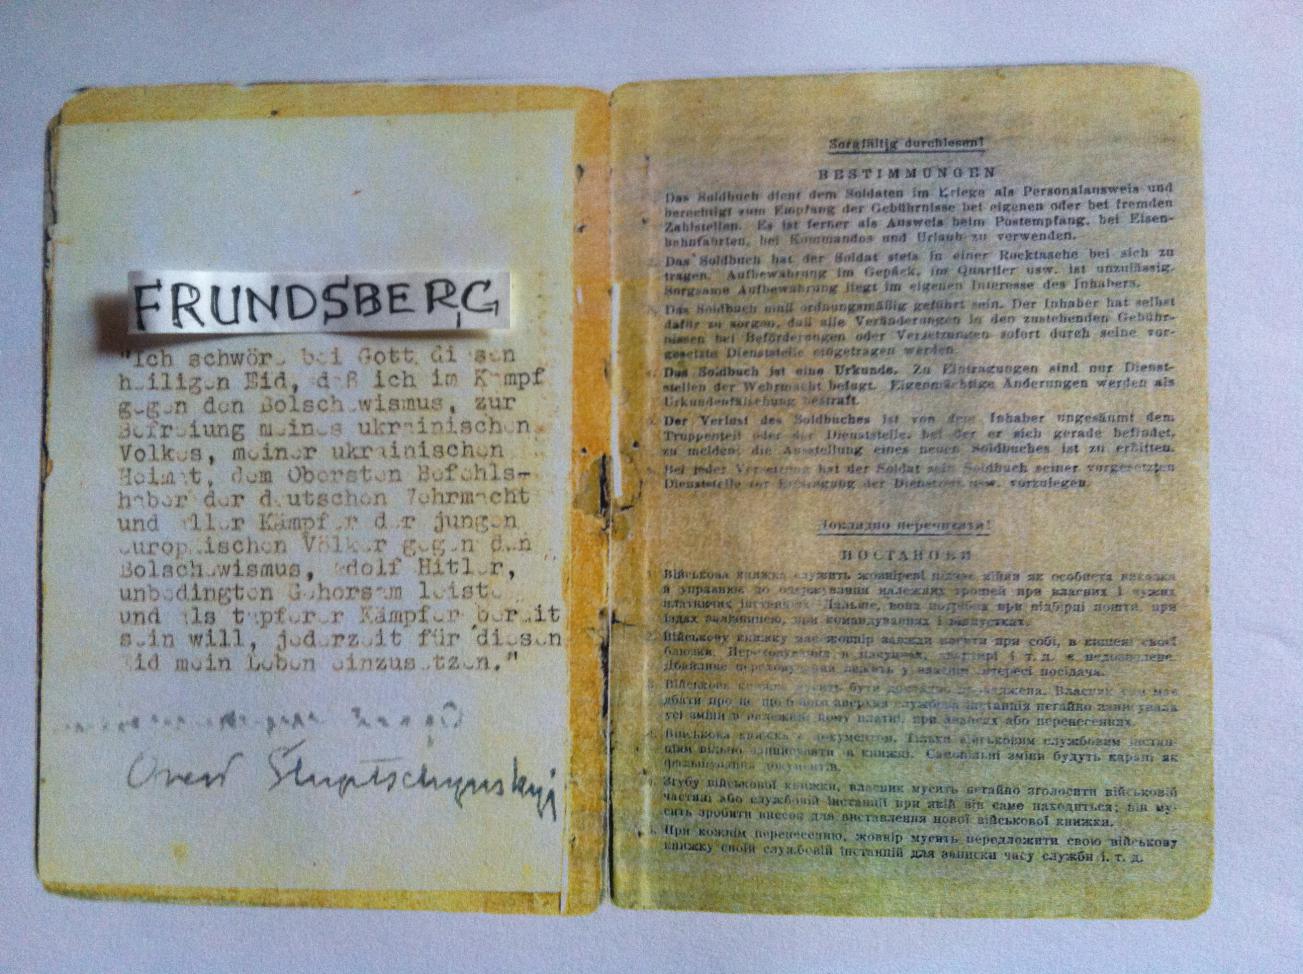 FRUNDSBERG
"Ich schwöre bei Gott diesen
heiligen Eid, daß ich im Kampf
gegen den Bolschewismus, zur
Befreiung meines ukrainischen
Volkes, meiner ukrainischen
Heimat, dem Obersten Befehls-
haber der deutschen Wehrmacht
und aller Kämpfer der jungen
europäischen Völker gegen den
Bolschewismus, Adolf Hitler,
unbedingten Gehorsam leiste
und als tapferer Kämpfer bereit
sein will, jederzeit für diesen
Eid mein Leben einzusetzen."
Sorgfältig durchlesen!
BESTIMMUNGEN
Das Soldbuch dient dem Soldaten im Kriege als Personalausweis und
berechtigt zum Empfang der Gebührnisse bei eigenen oder bei fremden
Zahlstellen. Es ist ferner als Ausweis beim Postempfang, bei Eisen-
bahnfahrten, bei Kommandos und Urlaub zu verwenden.
Das Soldbuch hat der Soldat stets in einer Rocktasche bei sich zu
tragen. Aufbewahrung im Gepäck, im Quartier usw. ist unzulässig.
Sorgsame Aufbewahrung liegt im eigenen Interesse des Inhabers.
Das Soldbuch muß ordnungsmäßig geführt sein. Der Inhaber hat selbst
dafür zu sorgen, daß alle Veränderungen in den zustehenden Gebühr-
nissen bei Beförderungen oder Versetzungen sofort durch seine vor-
gesetzte Dienststelle eingetragen werden.
Das Soldbuch ist eine Urkunde. Zu Eintragungen sind nur Dienst-
stellen der Wehrmacht befugt. Eigenmächtige Änderungen werden als
Urkundenfälschung bestraft.
Der Verlust des Soldbuches ist von dem Inhaber ungesäumt dem
Truppenteil oder der Dienststelle, bei der er sich gerade befindet,
zu melden; die Ausstellung eines neuen Soldbuches ist zu erbitten.
Bei jeder Versetzung hat der Soldat sein Soldbuch seiner vorgesetzten
Dienststelle zur Eintragung der Dienstzeit usw. vorzulegen.
Докладно перечитати!
ПОСТАНОВИ
1. Військова книжка служить жовнірові підчас війни як особиста виказка
й управнює до одержування належних грошей при власних і чужих
платничих інстанціях. Дальше, вона потрібна при відбірці пошти, при
їздах залізницею, при командуваннях і відпустках.
2. Військову книжку має жовнір завжди носити при собі, в кишені своєї
блюзки. Переховування в пакунках, квартирі і т. д. є недозволене.
Дбайливе переховування лежить у власнім інтересі посідача.
Військова книжка мусить бути докладно проваджена. Власник сам має
дбати про це, щоб його зверхня службова інстанція негайно записувала
усі зміни в належній йому платні, при авансах або перенесеннях.
Військова книжка є документом. Тільки військовим службовим інстан-
ціям вільно записувати в книжці. Самовільні зміни будуть карані як
фальшування документів.
Згубу військової книжки, власник мусить негайно зголосити військовій
частині або службовій інстанції при якій він саме находиться; він му-
сить зробити внесок для виставлення нової військової книжки.
При кожнім перенесенню, жовнір мусить передложити свою військову
книжку своїй службовій інстанцій для записки часу служби і. т. д.